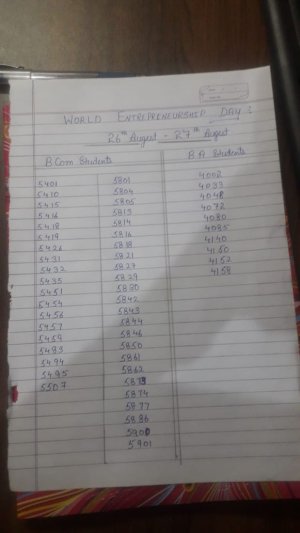 WORLD ENTREPRENEURSHIP DAY :
26th August - 27th August
B.Com Students
5401
5410
5415
5416
5418
5419
5426
5431
5432
5435
5451
5454
5456
5457
5459
5493
5494
5495
5507
5801
5804
5805
5813
5814
5816
5818
5821
5827
5829
5830
5842
5843
5844
5846
5850
5861
5862
5873
5874
5877
5886
5900
5901
B.A Students
4002
4033
4048
4072
4080
4085
4140
4150
4152
4158